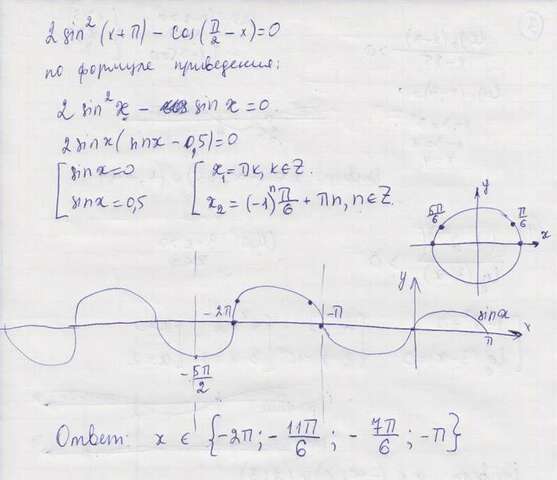 2 sin² (x+π) − cos(π/2 − x)=0
по формуле приведения:
2 sin² x − sin x = 0
2 sin x( sin x − 0,5)=0
[ sin x=0 [ x₁= πk, k∈Z.
sin x=0,5 x₂ = (−1)ⁿ π/6 + πn, n∈Z.
y
5π/6 π/6
x
y
−2π −π sin x
x
π
−5π/2
Ответ: x ∈ {−2π ; − 11π/6 ; − 7π/6 ; −π}